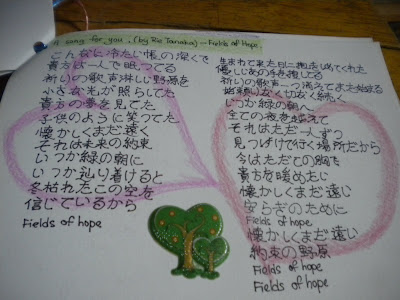 A song for you. (by Rie Tanaka) -- Fields of Hope.
こんなに冷たい帳の深くで
貴方は一人で眠ってる
祈りの歌声淋しい野原を
小さな光が照らしてた
貴方の夢を見てた
子供のように笑ってた
懐かしくまだ遠く
それは未来の約束
いつか緑の朝に
いつか辿り着けると
冬枯れたこの空を
信じているから
Fields of hope
生まれて来た日に抱きしめてくれた
優しいあの手を捜してる
祈りの歌声一つ消えてまた始まる
頼りなく切なく続く
いつか緑の朝へ
全ての夜を越えて
それはただ一人ずつ
見つけて行く場所だから
今はただこの胸で
貴方を暖めたい
懐かしくまだ遠い
安らぎのために
Fields of hope
懐かしくまだ遠い
約束の野原
Fields of hope
Fields of hope